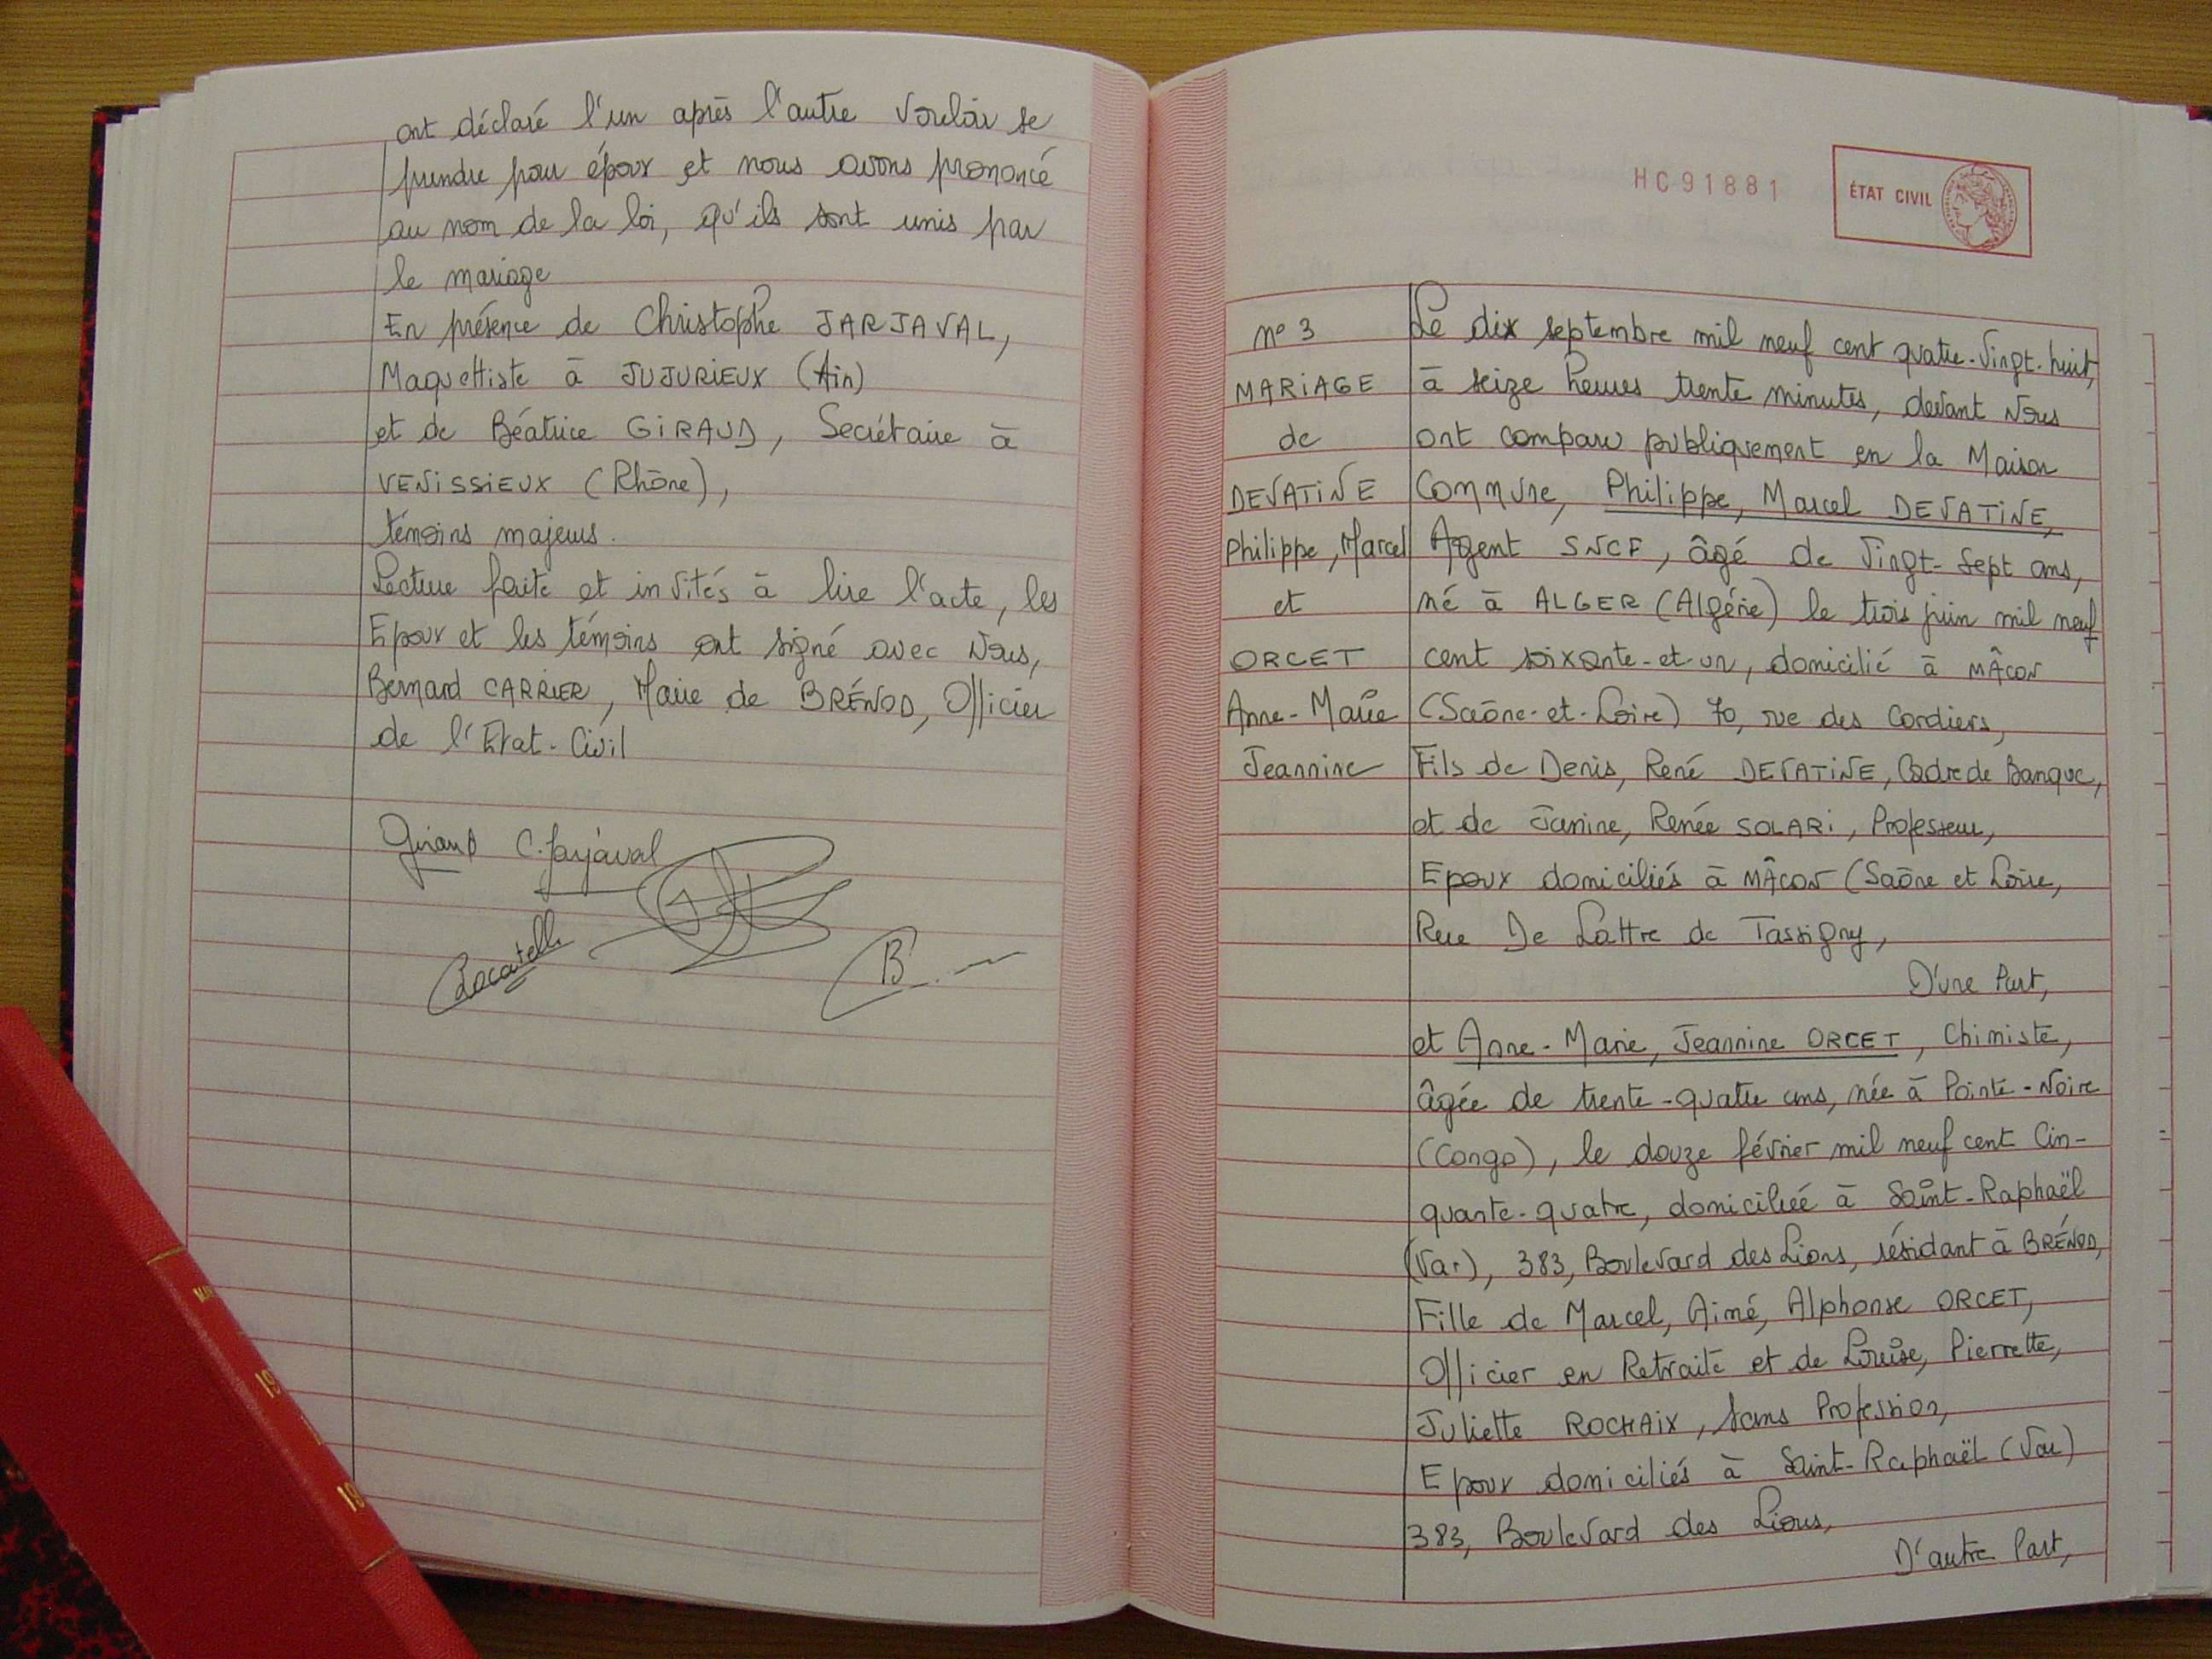 ont déclaré l'un après l'autre vouloir se
prendre pour époux et nous avons prononcé
au nom de la loi, qu'ils sont unis par
le mariage
En présence de Christophe JARJAVAL,
Maquettiste à JUJURIEUX (Ain)
et de Béatrice GIRAUD, Secrétaire à
VENISSIEUX (Rhône),
témoins majeurs.
Lecture faite et invités à lire l'acte, les
Epoux et les témoins ont signé avec Nous,
Bernard CARRIER, Maire de BRÉNOD, Officier
de l'Etat-Civil
Giraud C. Jarjaval
Locatelli
HC91881
ÉTAT CIVIL
n° 3
MARIAGE
de
DEVATINE
Philippe, Marcel
et
ORCET
Anne-Marie
Jeannine
Le dix septembre mil neuf cent quatre-vingt-huit,
à seize heures trente minutes, devant Nous
ont comparu publiquement en la Maison
Commune, Philippe, Marcel DEVATINE,
Agent SNCF, âgé de vingt-sept ans,
né à ALGER (Algérie) le trois juin mil neuf
cent soixante-et-un, domicilié à MÂCON
(Saône-et-Loire) 70, rue des Cordiers,
Fils de Denis, René DEVATINE, Cadre de Banque,
et de Janine, Renée SOLARI, Professeur,
Epoux domiciliés à MÂCON (Saône et Loire,
Rue De Lattre de Tassigny,
D'une Part,
et Anne-Marie, Jeannine ORCET, Chimiste,
âgée de trente-quatre ans, née à Pointe-Noire
(Congo), le douze février mil neuf cent Cin-
quante-quatre, domiciliée à Saint-Raphaël
(Var), 383, Boulevard des Lions, résidant à BRÉNOD,
Fille de Marcel, Aimé, Alphonse ORCET,
Officier en Retraite et de Louise, Pierrette,
Juliette ROCHAIX, sans Profession,
Epoux domiciliés à Saint-Raphaël (Var)
383, Boulevard des Lions,
D'autre Part,